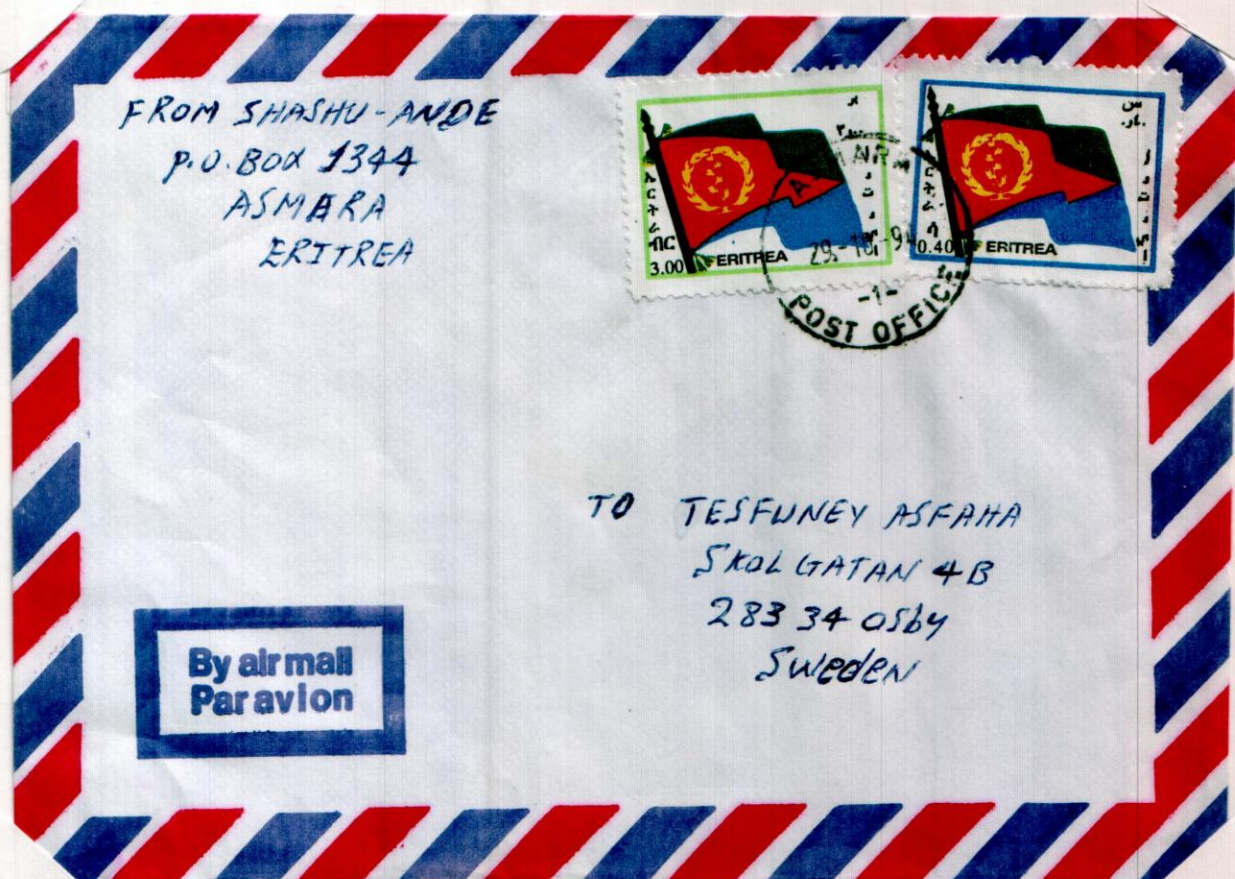 FROM SHASHU-ANDE
P.O. BOX 1344
ASMARA
ERITREA
ኤርትራ ብር
3.00
ERITREA
ኤርትራ ሳ
0.40
ERITREA
-1-
POST OFFICE
TO TESFUNEY ASFAHA
SKOLGATAN 4B
283 34 Osby
Sweden
By air mail
Par avion